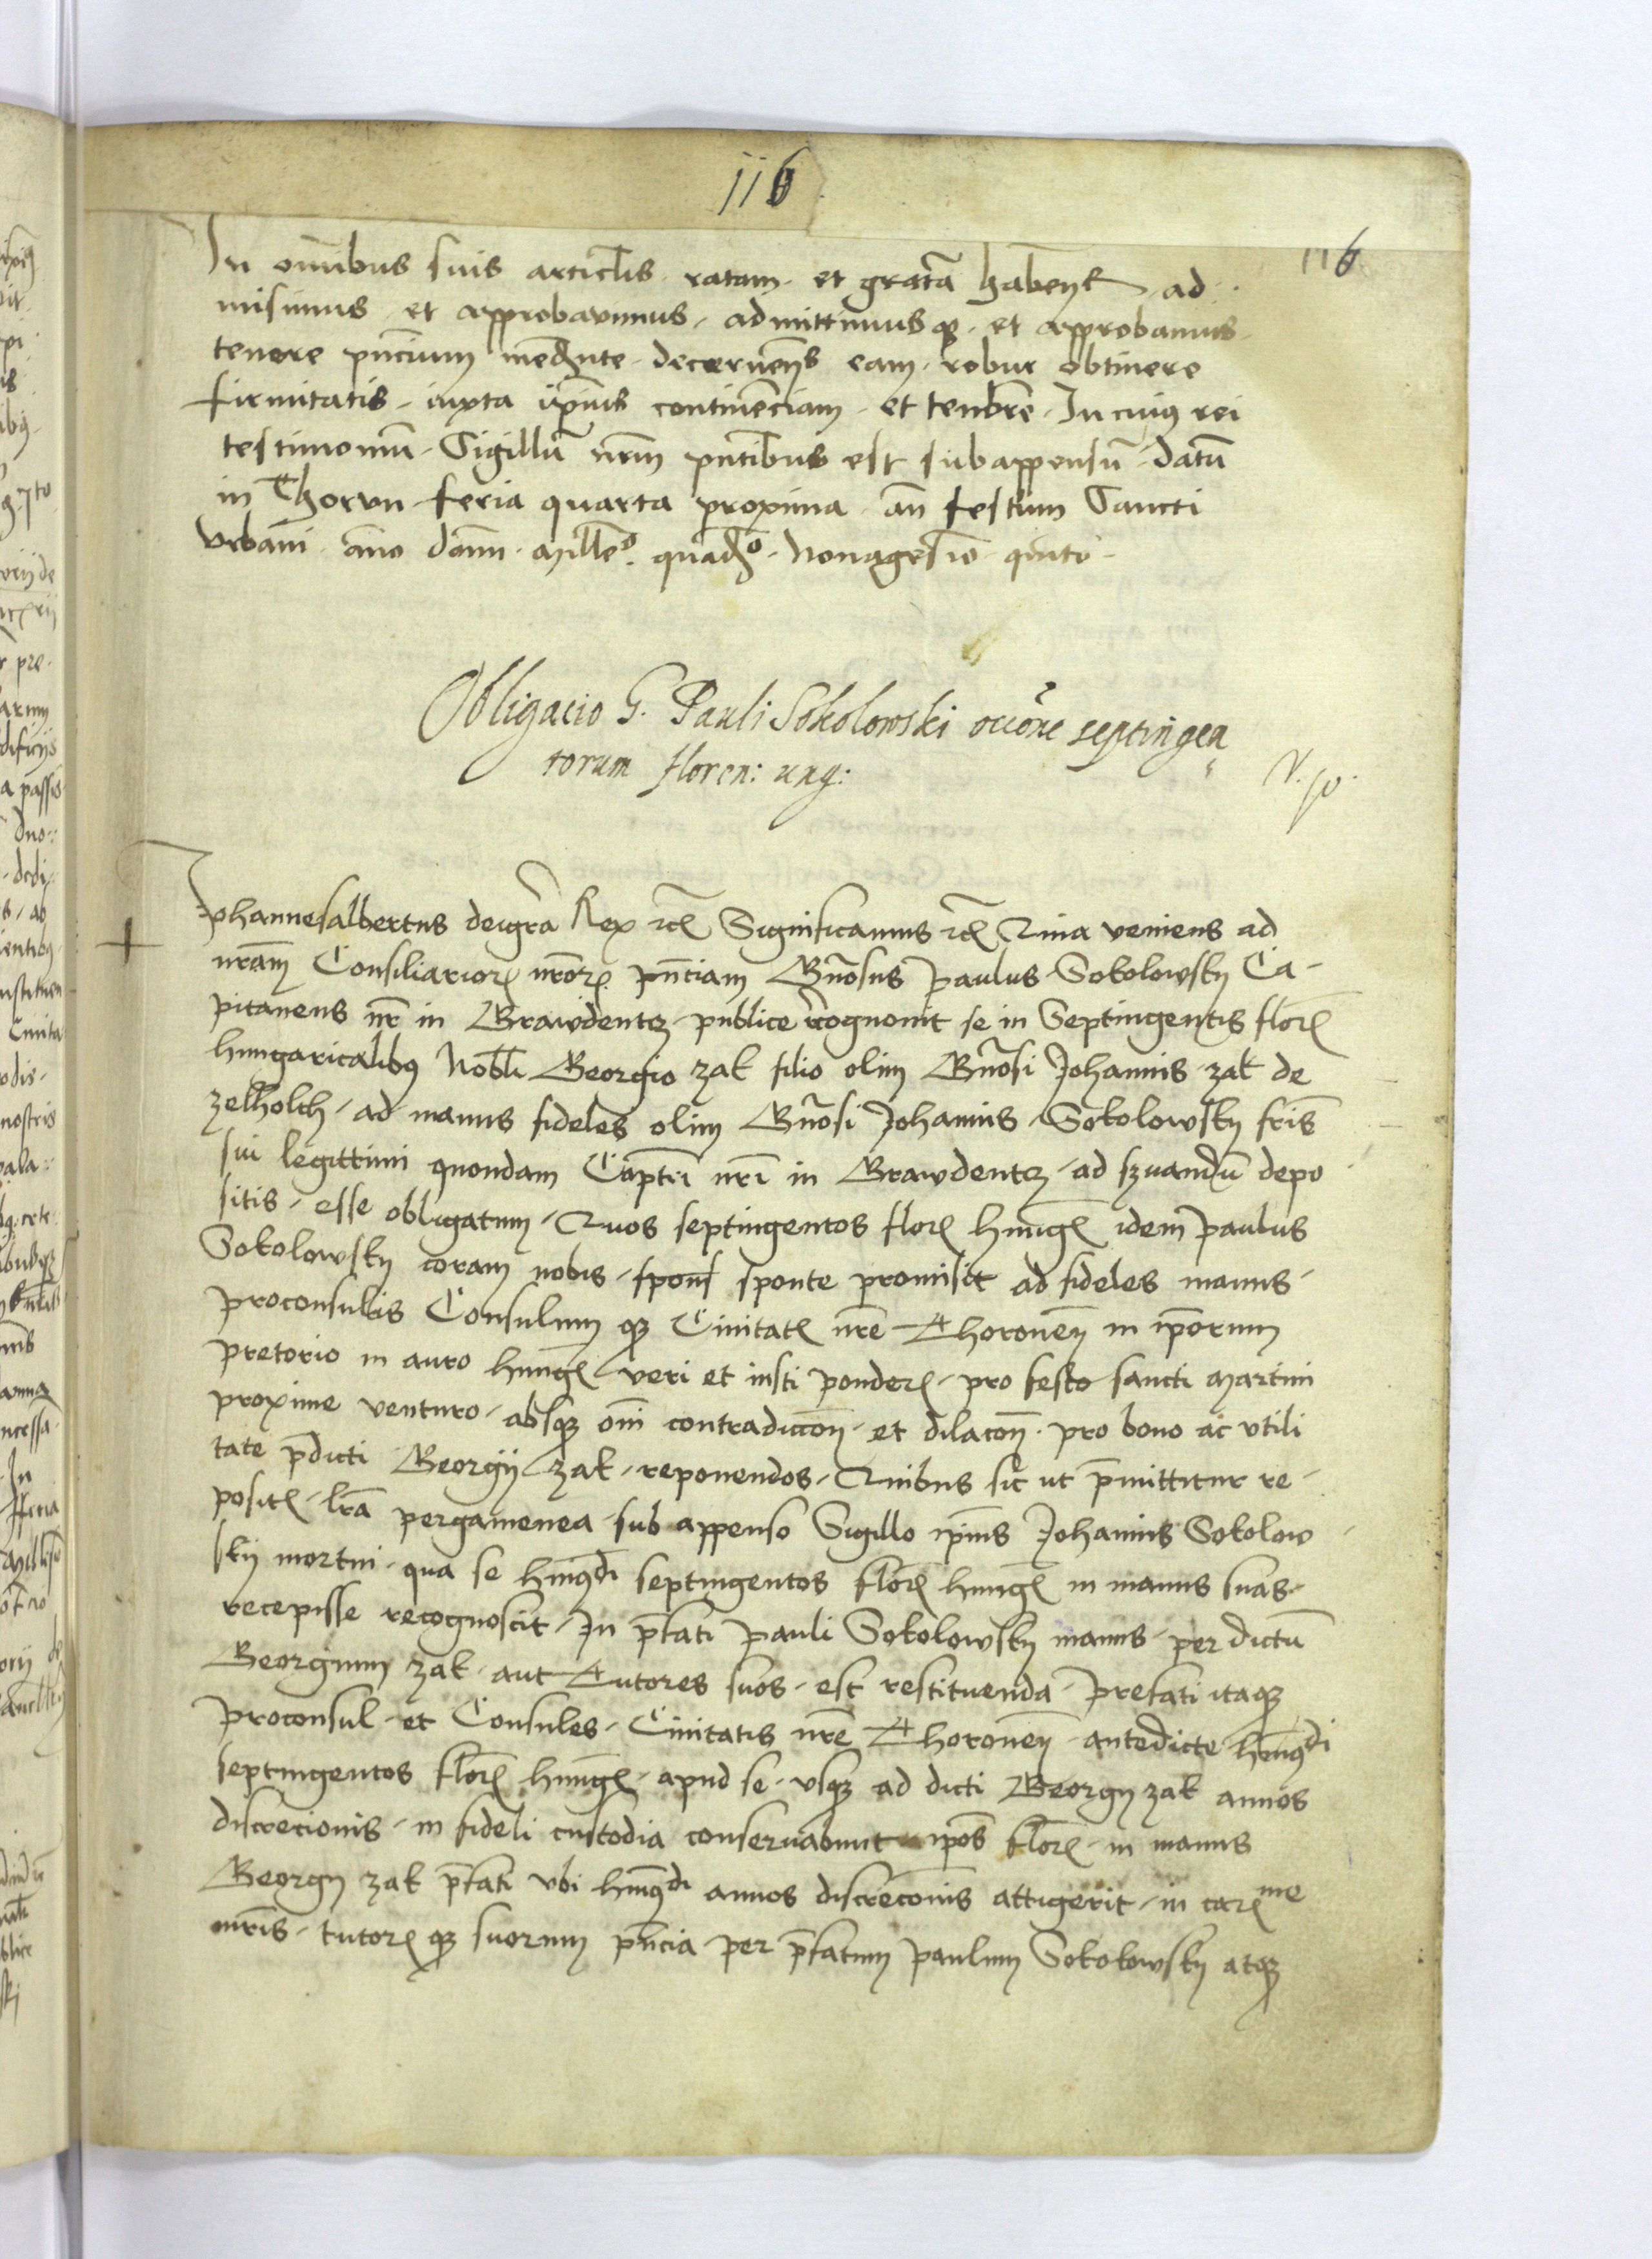 116
116
In om̄ibus suis articl̄is ratam et gratā habent̄ ad
misimus et approbavimus admittimusq₃ et approbamus
tenore pn̄cium med̄nte decernen̄s eam robur obtinere
firmitatis iuxta ip̄ius contine̅ciam et tenōre In cuiꝰ rei
testimoniū Sigillū nr̄m pn̄tibus est subappensū Datū
in Thorun feria quarta proxima an̄ festum Sancti
Vrbani an̄o dom̄ Mill̄eo quad̄o Nonagesīo quīto
Obligacio G. Pauli Sokolowski occōne septingen
torum floren: ung:
Johannesalbertus deigrā Rex ꝛc̄ Significamus ꝛc̄ Quia veniens ad
nrām Consiliarioꝝ nr̄oꝝ pn̄ciam Gn̄osus Paulus Sokolowsky Ca-
pitaneus nr̄ in Grawdentz publice rēcognouit se in Septingentis floꝝ
hungaricalibꝰ Nobli Georgio zak filio olim Gn̄osi Johannis zak de
zelholth ad manus fideles olim Gn̄osi Johannis Sokolowsky fr̄is
sui legittimi quondam Capt̄ei nr̄i in Grawdentz ad s̄uandū depo
sitis esse obligatum Quos septingentos floꝝ hungꝝ idem Paulus
Sokolowsky coram nobis spons sponte promisit ad fideles manus
proconsulis Consulumq₃ Ciuitatꝭ nr̄e Thoronen̄ in ip̄orum
pretorio in auro hungꝝ veri et iusti ponderꝭ pro festo sancti Martini
proxime venturo absq₃ om̄i contradiccon̄ et dilacon̄ pro bono ac vtili
tate p̄dicti Georgij zak reponendos Quibus sic ut p̄mittitur re
positꝭ lr̄a pergamenea sub appenso Sigillo ip̄ius Johannis Sokolow
sky mortui qua se hmōꝰdi septingentos floꝝ hungꝝ in manus suas
recepisse recognoscit In p̄fati Pauli Sokolowsky manus per dictū
Georgium zak aut Tutores suos est restituenda Prefati itaq₃
Proconsul et Consules Ciuitatis nr̄e Thoronen̄ antedicte hmōꝰdi
septingentos floꝝ hungꝝ apud se vsq₃ ad dicti Georgy zak annos
discrecionis in fideli custodia conseruabunt ip̄os floꝝ in manus
Georgy zak p̄fati vbi hmōꝰdi annos discrecōnis attigerit in carꝭme
mr̄is tutoꝝq₃ suorum pn̄cia per p̄fatum Paulum Sokolowsky atq₃